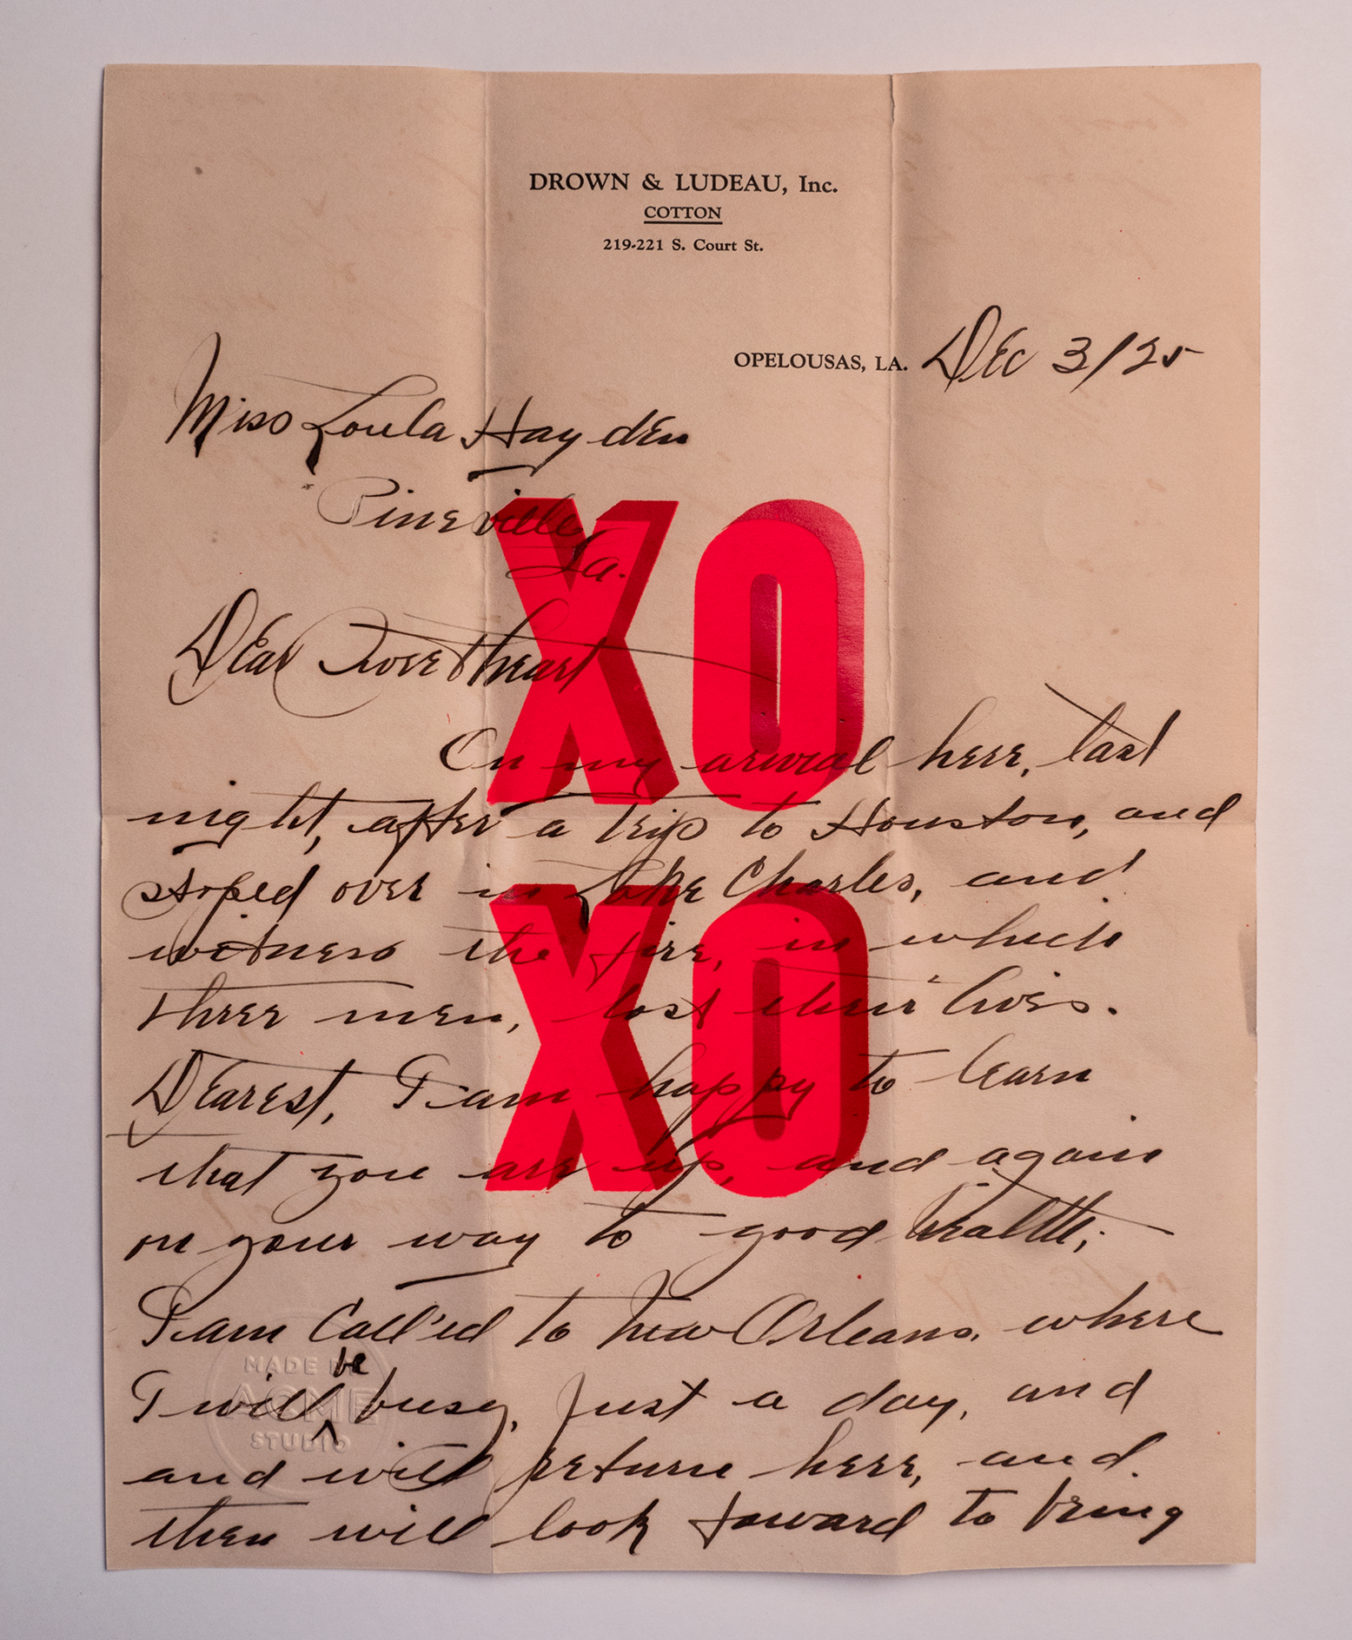 DROWN & LUDEAU, Inc.
COTTON
219-221 S. Court St.
OPELOUSAS, LA. Dec 3/25
Miss Loula Hayden
Pineville,
La.
Dear Sweetheart
On my arrival here, last
night, after a trip to Houston, and
stoped over in Lake Charles, and
witness the fire, in which
three men, lost their lives.
Dearest, I am happy to learn
that you are up, and again
on your way to good health;
I am Call'ed to New Orleans, where
I will be busy, Just a day, and
and will return here, and
then will look foward to being
XO
XO
MADE IN
ACME
STUDIO